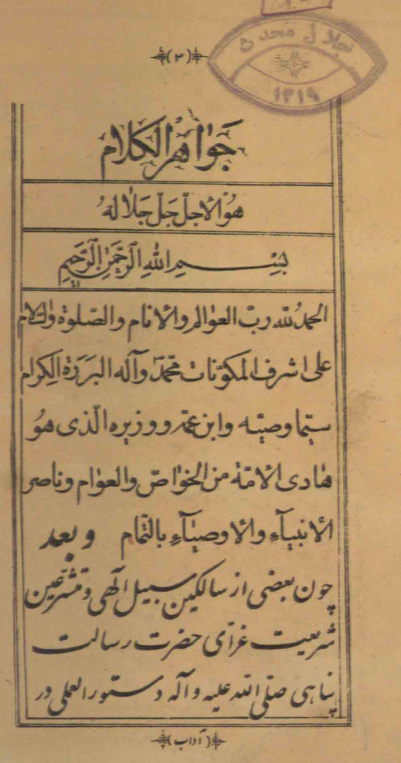 (۲)
جلال محدث
۱۳۱۹
جَواهرالکلام
هُوَالاجلّ جَلّ جَلالهُ
بِسْمِ اللهِ الرَّحْمٰنِ الرَّحیمِ
الحمدُلله ربّ العوالم والانام والصّلوة والسّلام
علی اشرف المکوّنات محمّد وآله البررة الکرام
سیّما وصیّه وابن عمّه ووزیره الّذی هوُ
هادی الامّة من الخواصّ والعوام وناصر
الانبیآء والاوصیآء بالتّمام وبعد
چون بعضی از سالکین سبیل الهی و متشرّعین
شریعت غرّای حضرت رسالت
پناهی صلّی الله علیه وآله دستورالعملی در
(آداب)